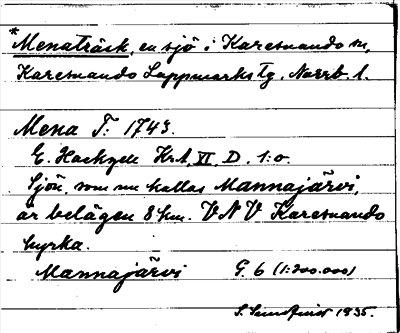 *Menaträsk, en sjö i Karesuando sn,
Karesuando Lappmarks tg. Norrb. l.
Mena T: 1743.
E. Hackzell KrA XI, D. 1:o.
Sjön, som nu kallas Mannajärvi,
är belägen 8 km. VNV Karesuando
kyrka.
Mannajärvi G. 6 (1:200.000)
S. 1935.